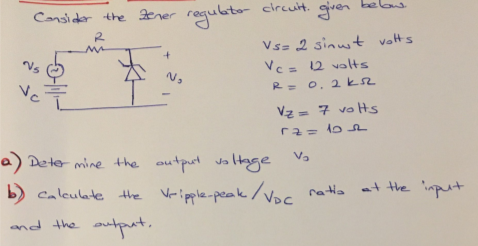 Consider the zener regulator circuit given below.
R
Vs = 2 sinwt volts
+
Vs
Vo
Vc = 12 volts
R = 0.2 kΩ
Vc
-
Vz = 7 volts
rz = 10 Ω
a) Deter mine the output voltage Vo
b) Calculate the Vripple-peak/VDC ratio at the input
and the output.